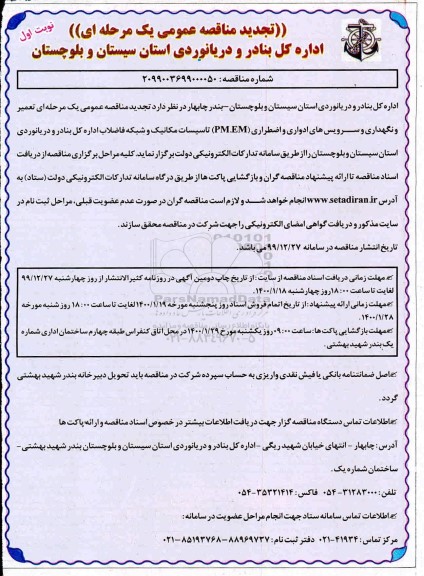 نوبت اول
((تجدید مناقصه عمومی یک مرحله ای))
اداره کل بنادر و دریانوردی استان سیستان و بلوچستان
شماره مناقصه: ۲۰۹۹۰۰۳۶۹۹۰۰۰۰۵۰
اداره کل بنادر و دریانوردی استان سیستان وبلوچستان-بندر چابهار در نظر دارد تجدید مناقصه عمومی یک مرحله ای تعمیر
و نگهداری و سرویس های ادواری و اضطراری (PM.EM) تاسیسات مکانیک و شبکه فاضلاب اداره کل بنادر و دریانوردی
استان سیستان وبلوچستان را از طریق سامانه تدارکات الکترونیکی دولت برگزار نماید. کلیه مراحل برگزاری مناقصه از دریافت
اسناد مناقصه تا ارائه پیشنهاد مناقصه گران و بازگشایی پاکت ها از طریق درگاه سامانه تدارکات الکترونیکی دولت (ستاد) به
آدرس www.setadiran.ir انجام خواهد شد و لازم است مناقصه گران در صورت عدم عضویت قبلی، مراحل ثبت نام در
سایت مذکور و دریافت گواهی امضای الکترونیکی را جهت شرکت در مناقصه محقق سازند.
تاریخ انتشار مناقصه در سامانه ۹۹/۱۲/۲۷ می باشد.
مهلت زمانی دریافت اسناد مناقصه از سایت: از تاریخ چاپ دومین آگهی در روزنامه کثیر الانتشار از روز چهارشنبه ۹۹/۱۲/۲۷
لغایت تا ساعت ۱۸:۰۰ روز چهارشنبه ۱۴۰۰/۱/۱۸.
مهلت زمانی ارائه پیشنهاد: از تاریخ اتمام فروش اسناد روز پنجشنبه مورخه ۱۴۰۰/۱/۱۹ لغایت تا ساعت ۱۸:۰۰ روز شنبه مورخه
۱۴۰۰/۱/۲۸.
مهلت بازگشایی پاکت ها: ساعت ۰۹:۰۰ روز یکشنبه مورخ ۱۴۰۰/۱/۲۹ در محل اتاق کنفراس طبقه چهارم ساختمان اداری شماره
یک بندر شهید بهشتی.
اصل ضمانتنامه بانکی یا فیش نقدی واریزی به حساب سپرده شرکت در مناقصه باید تحویل دبیرخانه بندر شهید بهشتی
گردد.
اطلاعات تماس دستگاه مناقصه گزار جهت دریافت اطلاعات بیشتر در خصوص اسناد مناقصه و ارائه پاکت ها
آدرس: چابهار - انتهای خیابان شهید ریگی - اداره کل بنادر و دریانوردی استان سیستان و بلوچستان بندر شهید بهشتی-
ساختمان شماره یک.
تلفن: ۳۱۲۸۳۰۰۰-۰۵۴ فاکس: ۳۵۳۲۱۴۱۴-۰۵۴
اطلاعات تماس سامانه ستاد جهت انجام مراحل عضویت در سامانه:
مرکز تماس: ۴۱۹۳۴-۰۲۱ دفتر ثبت نام: ۸۸۹۶۹۷۳۷-۸۵۱۹۳۷۶۸-۰۲۱